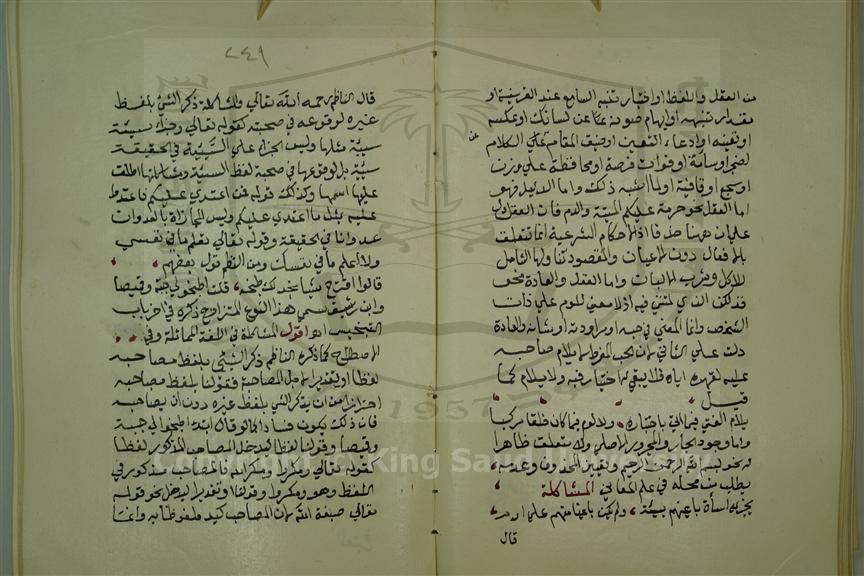 من العقل واللفظ او اختبار تنبه السامع عند القرينة او
مقدار تنبهه او ايهام صونه عن لسانك او عكسه
او تعينه او ادعاء التعين او ضيق المقام على الكلام
لضجر او سآمة او فوات فرصة او محافظة على وزن
او سجع او قافية او ما اشبه ذلك واما الدليل فهو
اما العقل نحو حرمت عليكم الميتة والدم فان العقل دل
على ان ههنا حذفا اذ الاحكام الشرعية انما تتعلق
بالافعال دون الاعيان والمقصود تناولها الشامل
للاكل وشرب الالبان واما العقل والعادة نحو
فذلكن الذي لمتنني فيه اذ لا معنى للوم على ذات
الشخص وانما المعنى في حبه او مراودته او شانه والعادة
دلت على الثاني لان الحب المفرط لا يلام صاحبه
عليه لقهره اياه فلا يبقى له اختيار فيه ولا يلام كما
قيل
يلام الفتى فيما اتى باختياره ولا لوم فيما كان خلقا مركبا
واما وجود الجار والمجرور
نحو بسم الله الرحمن الرحيم
يطلب من محله في علم المعاني المشاكلة
قال
٢٤٩
قال الناظم رحمه الله تعالى والمشاكلة ذكر الشئ بلفظ
غيره لوقوعه في صحبته كقوله تعالى وجزاء سيئة
سيئة مثلها وليس الجزاء على السيئة في الحقيقة
سيئة بل لوقوعها في صحبة لفظ السيئة ومشاكلتها اطلق
عليها اسمها وكذلك قوله فمن اعتدى عليكم فاعتدوا
عليه بمثل ما اعتدى عليكم وليس المجازاة بالعدوان
عدوانا في الحقيقة وقوله تعالى تعلم ما في نفسي
ولا اعلم ما في نفسك ومن النظم قول بعضهم
قالوا اقترح شيئا نجد لك طبخه قلت اطبخوا لي جبة وقميصا
وابن رشيق يسمي هذا النوع المتزاوج ذكره في احزاب
التجنيس اهـ اقول المشاكلة في اللغة المماثلة وفي
الاصطلاح كما ذكره الناظم ذكر الشئ بلفظ مصاحبه
لفظا او تقديرا لاجل المصاحبة فقولنا بلفظ مصاحبه
احترازا من ان يذكر الشئ بلفظ غيره دون ان يصاحبه
فان ذلك يكون فسادا كما لو قال ابتداء اطبخوا لي جبة
وقميصا وقولنا لفظا ليدخل المصاحب المذكور لفظا
كقوله تعالى ومكروا ومكر الله فالمصاحب مذكور في
اللفظ وهو ومكروا وقولنا او تقديرا ليدخل نحو قوله
تعالى صبغة الله لان المصاحب